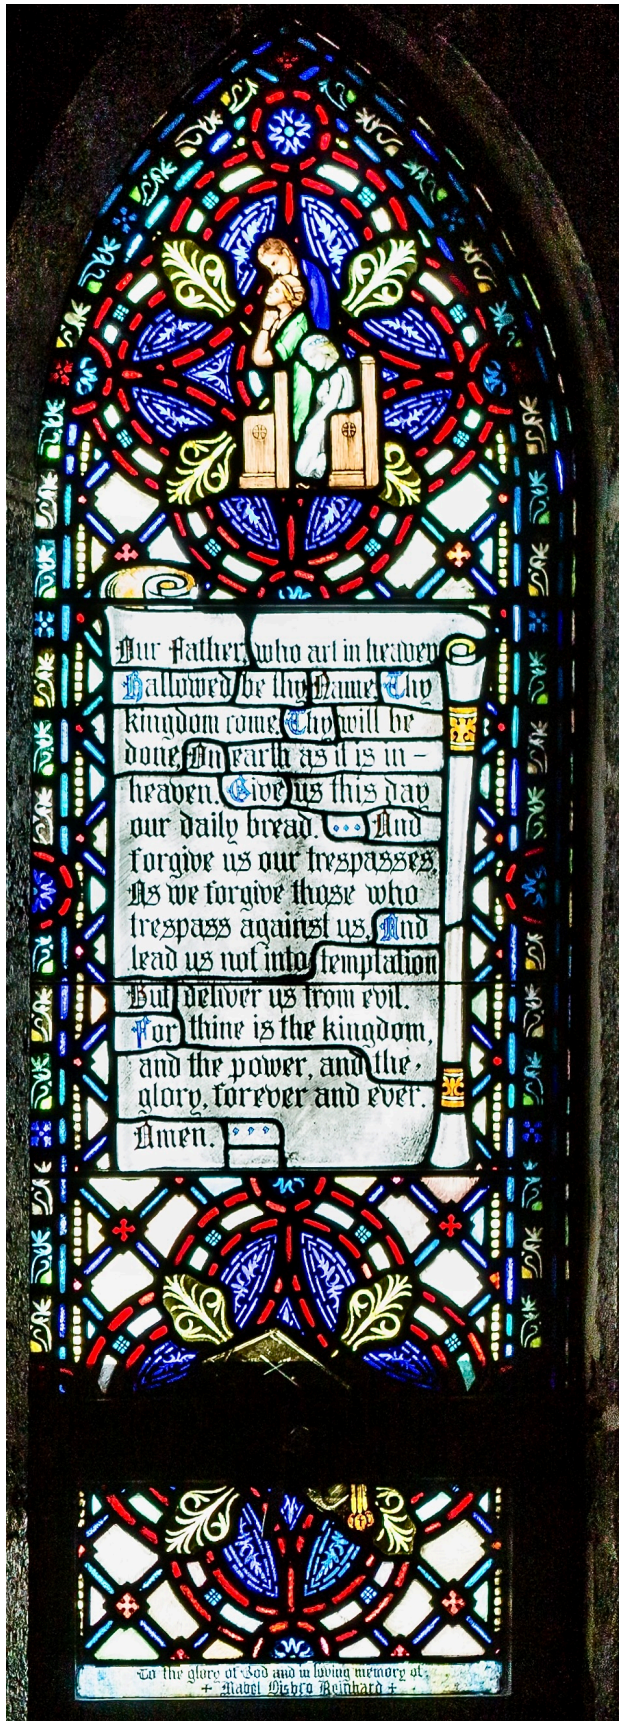 Our Father, who art in heaven
Hallowed be thy Name, Thy
kingdom come, Thy will be
done, On earth as it is in -
heaven. Give us this day
our daily bread. ... And
forgive us our trespasses,
As we forgive those who
trespass against us, And
lead us not into temptation
But deliver us from evil.
For thine is the kingdom,
and the power, and the
glory, forever and ever.
Amen. ...
To the glory of God and in loving memory of
+ Mabel Disbro Reinhard +